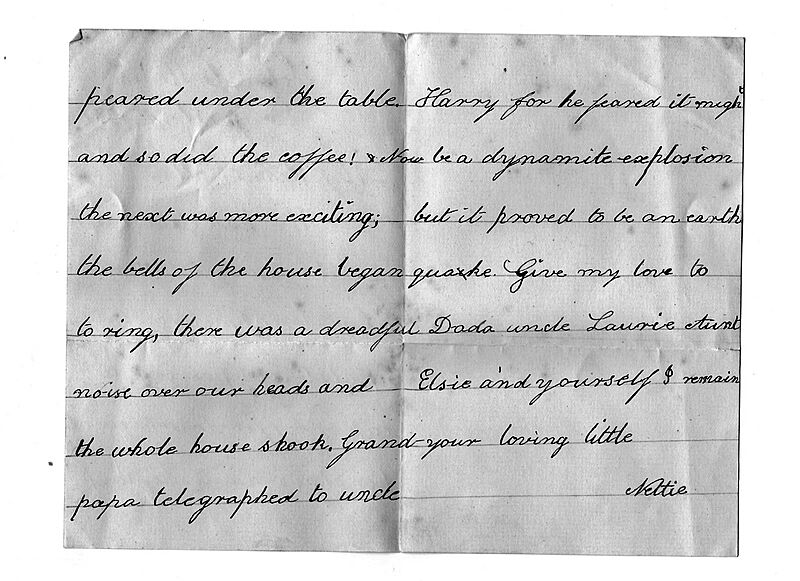 peared under the table.
and so did the coffee! & Now
the next was more exciting;
the bells of the house began
to ring, there was a dreadful
noise over our heads and
the whole house shook. Grand-
papa telegraphed to uncle
Harry for he feared it migh
be a dynamite explosion
but it proved to be an earth
quake. Give my love to
Dada uncle Laurie Aunt
Elsie and yourself I remain
your loving little
Nettie